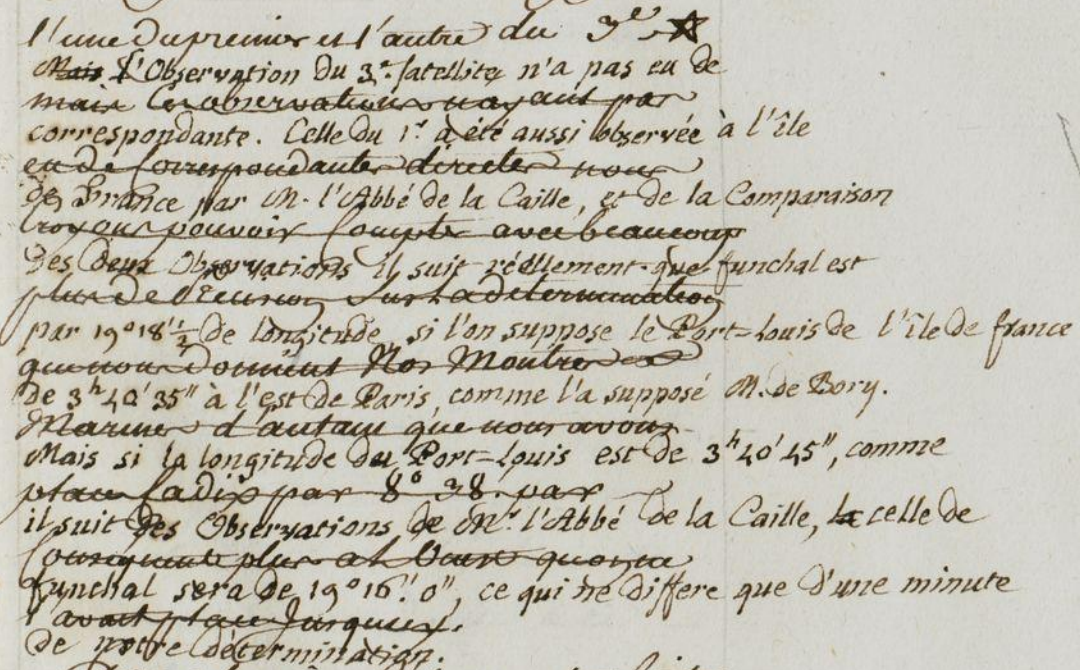 l'une du premier et l'autre du 3e. ☆
Mais L'Observation du 3e. Satellite n'a pas eu de
mais les observations n'ayant pas
correspondante. Celle du 1er. a été aussi observée à l'île
eu de Correspondantes directes nous
de France par M. l'Abbé de la Caille, et de la Comparaison
Croyons pouvoir Compter avec beaucoup
des deux Observations il suit réellement que funchal est
plus de précision sur la détermination
par 19° 18' 1/2 de longitude, si l'on suppose le Port=Louis de l'île de france
que nous donnent Nos Montres
de 3h 40' 35" à l'est de Paris, comme l'a supposé M. de Bory.
Marines d'autant que nous avons
Mais si la longitude du Port=Louis est de 3h 40' 45", comme
placé Cadix par 8° 38. par
il suit des Observations de Mr. l'Abbé de la Caille, la celle de
Conséquent plus à l'Ouest qu'on ne
funchal sera de 19° 16'. 0", ce qui ne differe que d'une minute
l'avait placé Jusqu'ici.
de notre détermination.